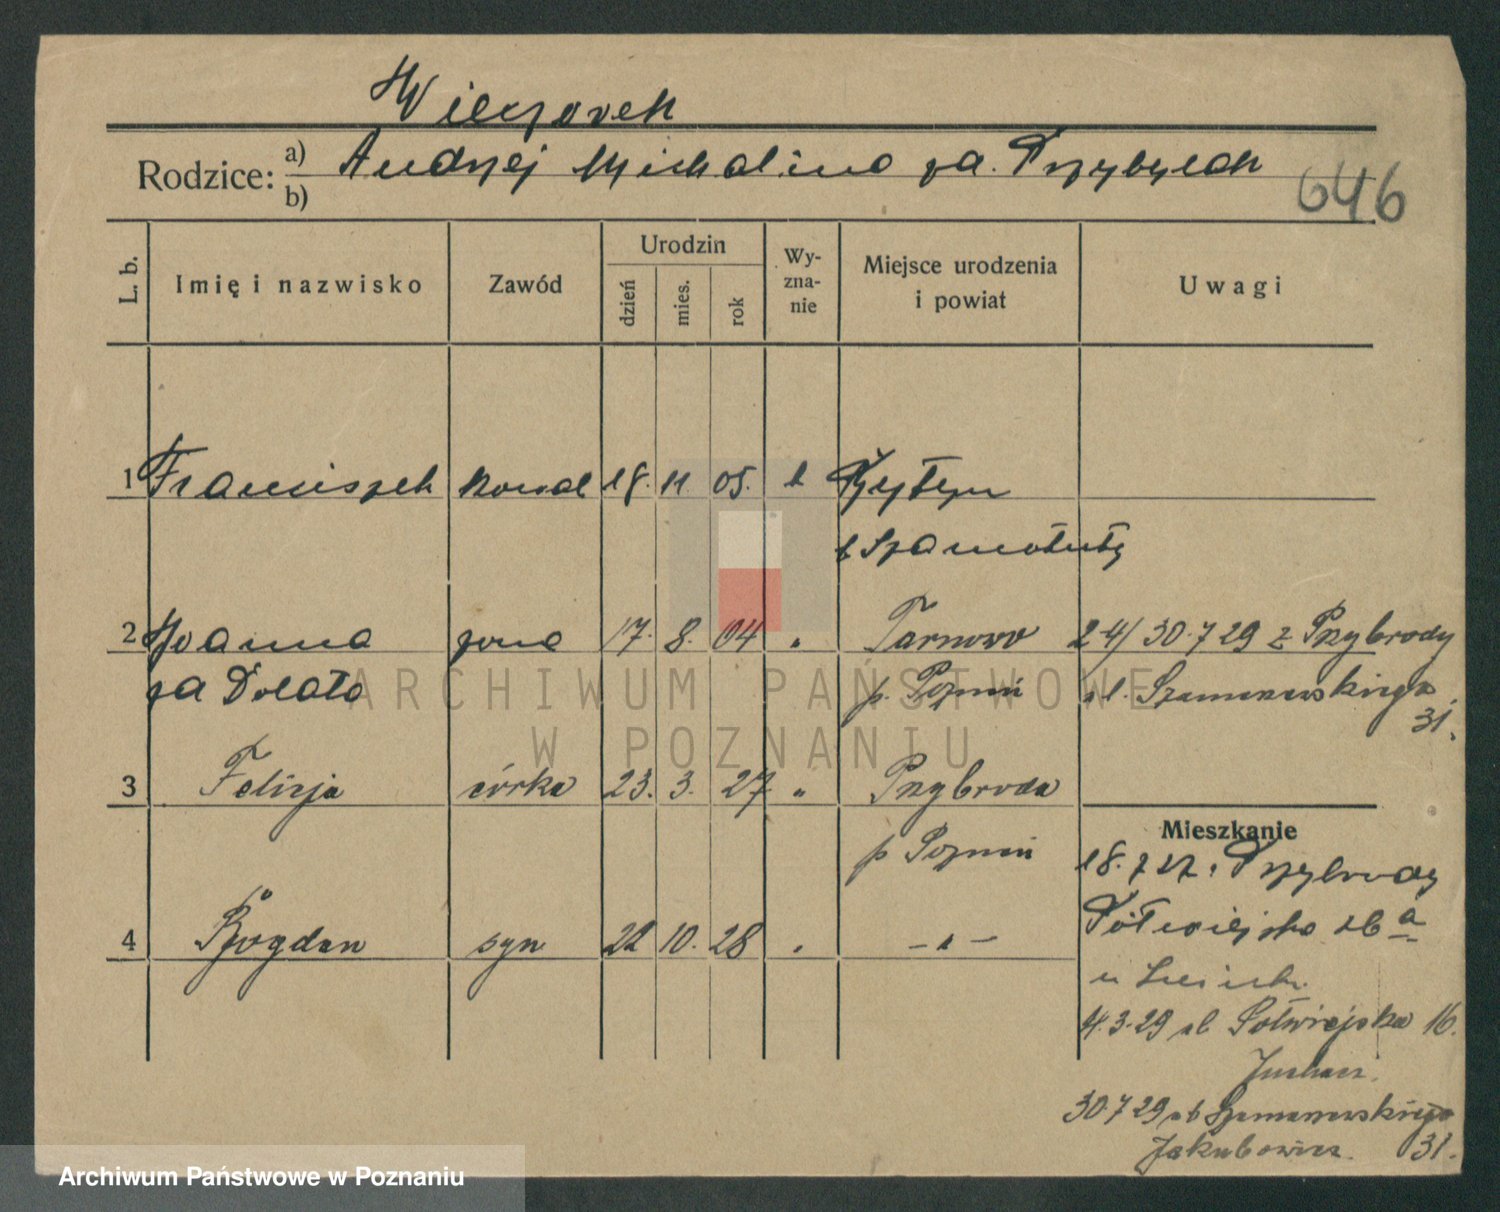 Wieczorek
Rodzice: a) b) Andrzej Michalina za. Przybyłek
646
L. b. Imię i nazwisko Zawód Urodzin dzień mies. rok Wy-zna-nie Miejsce urodzenia i powiat Uwagi
1 Franciszek kowal 18. 11. 05. k
Szamotuły
2 Joanna żona 17. 8. 04 " Tarnowo 24/ 30.7 29 z Przybrody
za Dolata p. Poznań ul. Szamarzewskiego
31.
3 Felicja córka 23. 3. 27 " Przybroda
p Poznań
4 Bogdan syn 22 10. 28 " — " —
Mieszkanie
18.7 27. Przybrody
Półwiejska 26 a
u
4.3.29 ul Półwiejska 16.
30.7 29 ul Szamarzewskiego
Jakubowicz 31.
ARCHIWUM PAŃSTWOWE
W POZNANIU
Archiwum Państwowe w Poznaniu